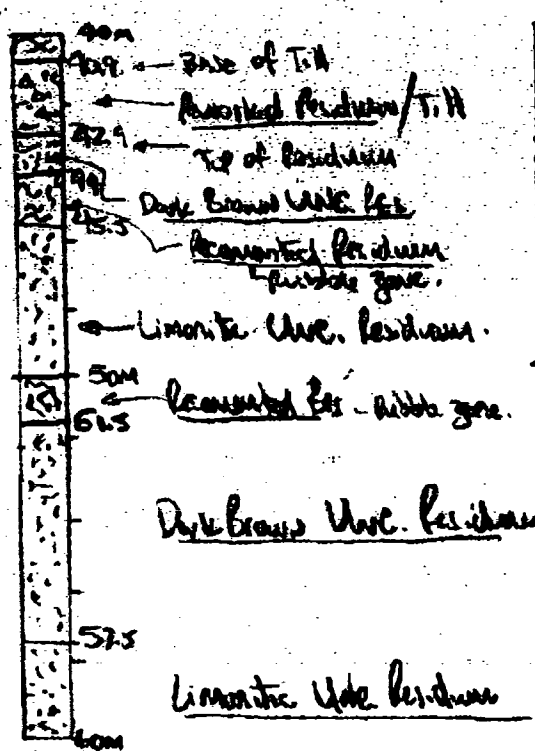 40M
40.9 Base of Till
Reworked Residuum/Till
42.9
Top of Residuum
44
Dark Brown Unc. Res.
45.5
Recemented Residuum
Rubble zone.
Limonitic Unc. Residuum.
50M
Recemented Res - Rubble zone.
51.5
Dark Brown Unc. Residuum
57.5
Limonitic Unc. Residuum
60M